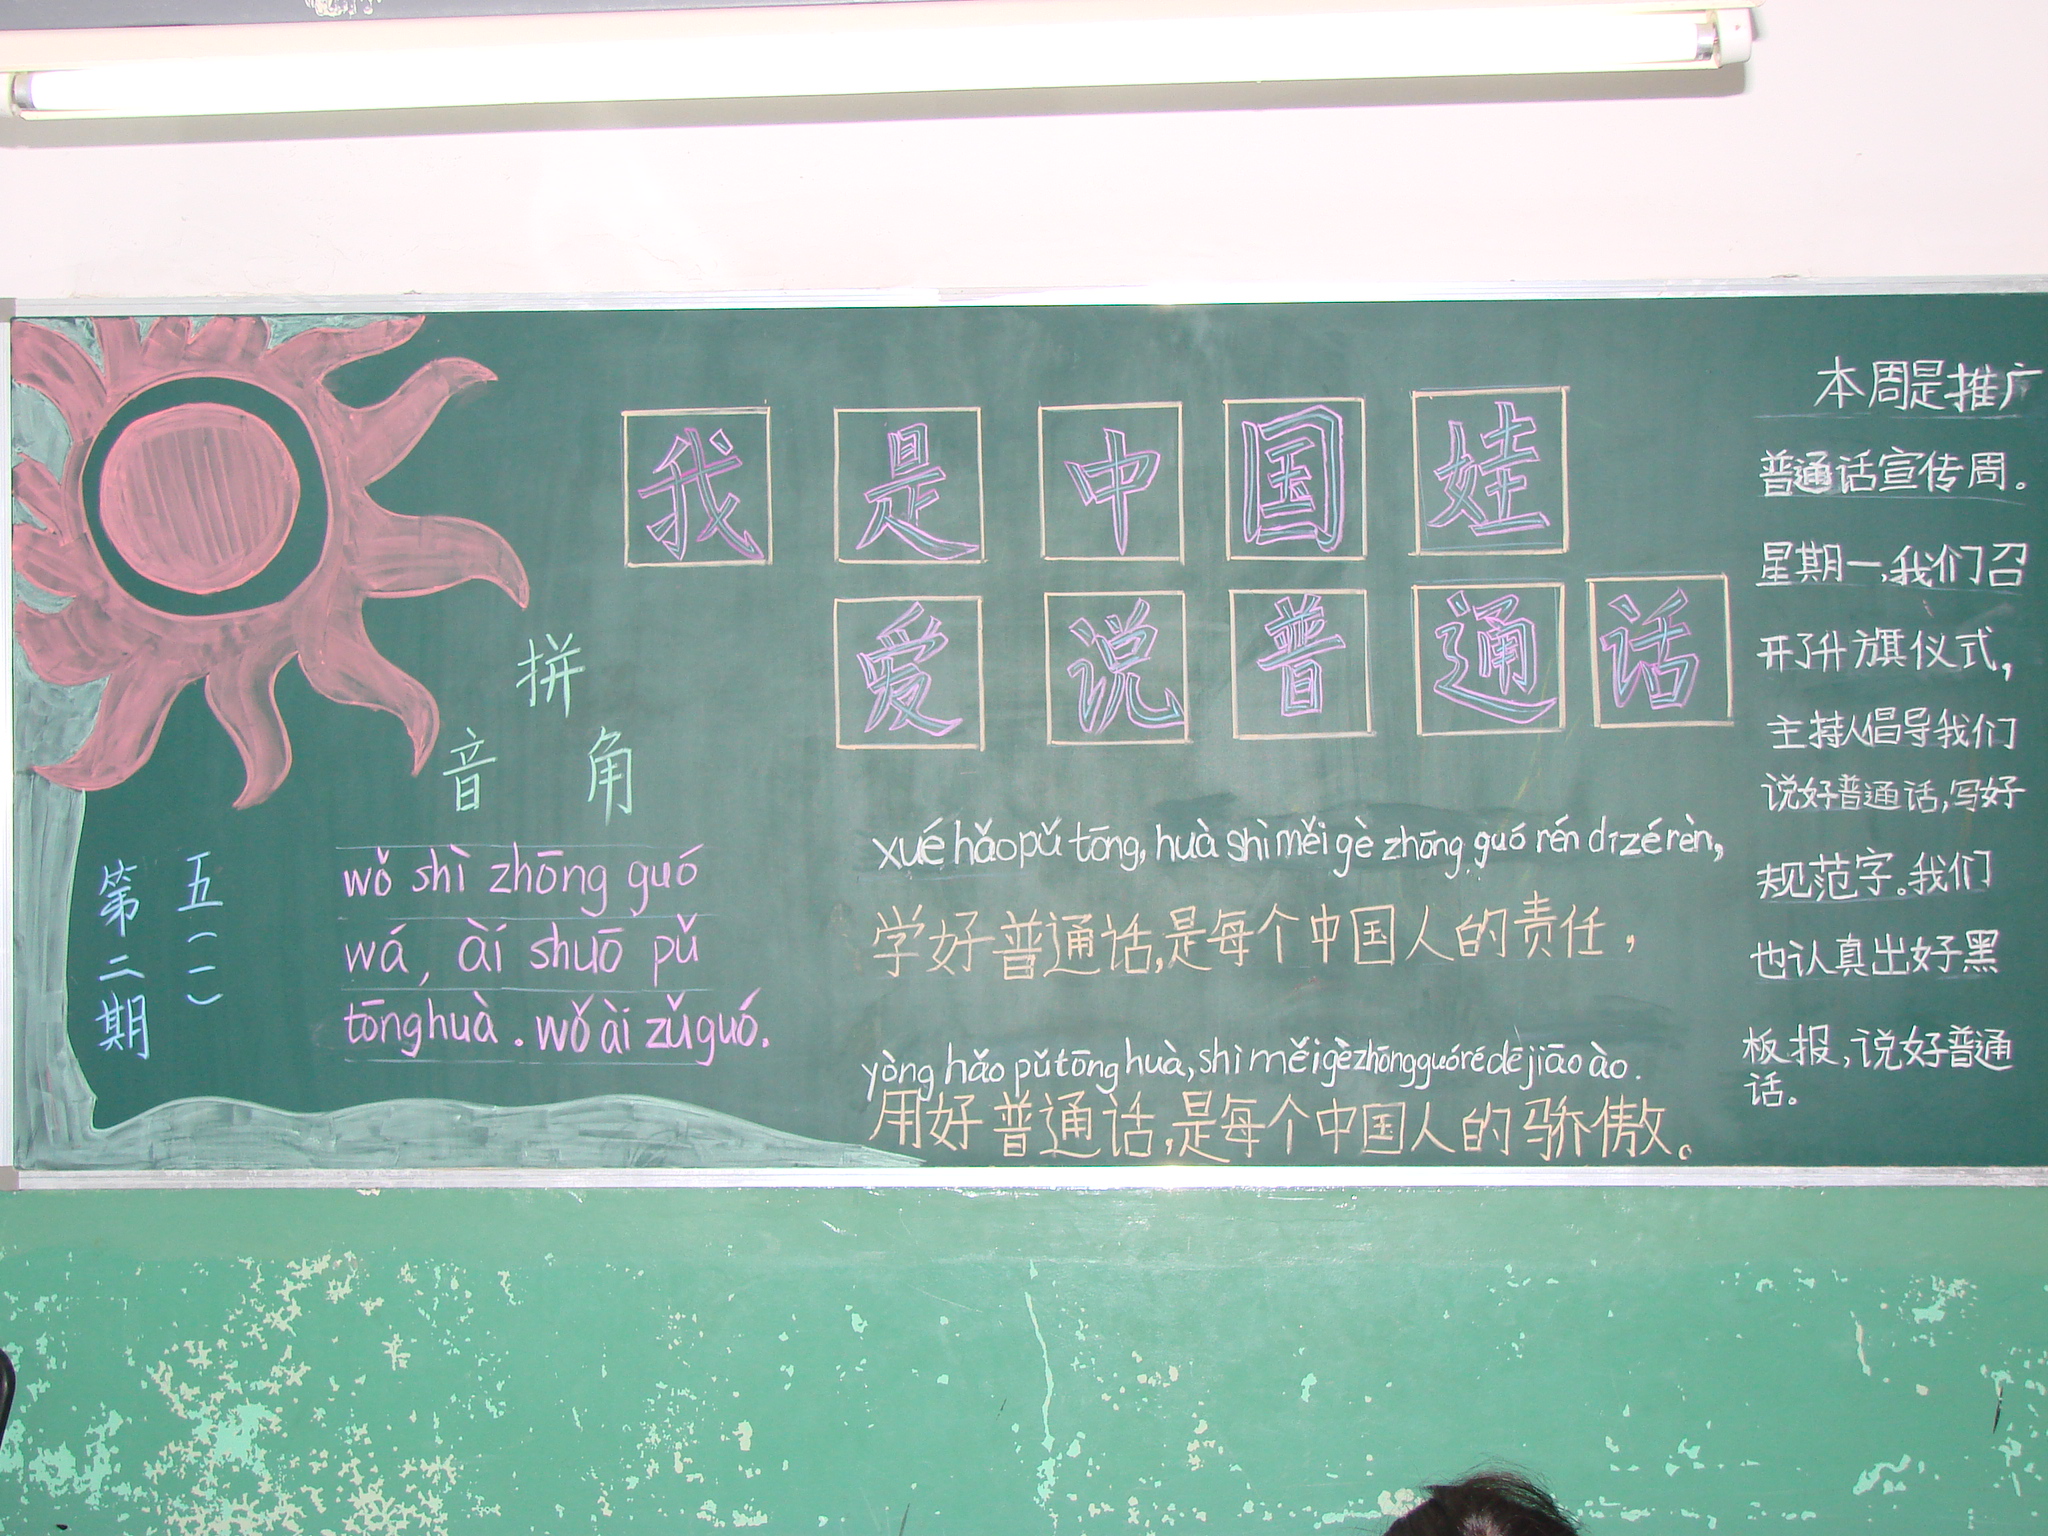 我是中国娃
爱说普通话
拼
音 角
五(一)
第二期
wǒ shì zhōng guó
wá, ài shuō pǔ
tōng huà. wǒ ài zǔ guó.
xué hǎo pǔ tōng, huà shì měi gè zhōng guó rén dī zé rèn,
学好普通话,是每个中国人的责任,
yòng hǎo pǔ tōng huà, shì měi gè zhōng guó ré dē jiāo ào.
用好普通话,是每个中国人的骄傲。
本周是推广
普通话宣传周。
星期一,我们召
开了升旗仪式,
主持人倡导我们
说好普通话,写好
规范字。我们
也认真出好黑
板报,说好普通
话。